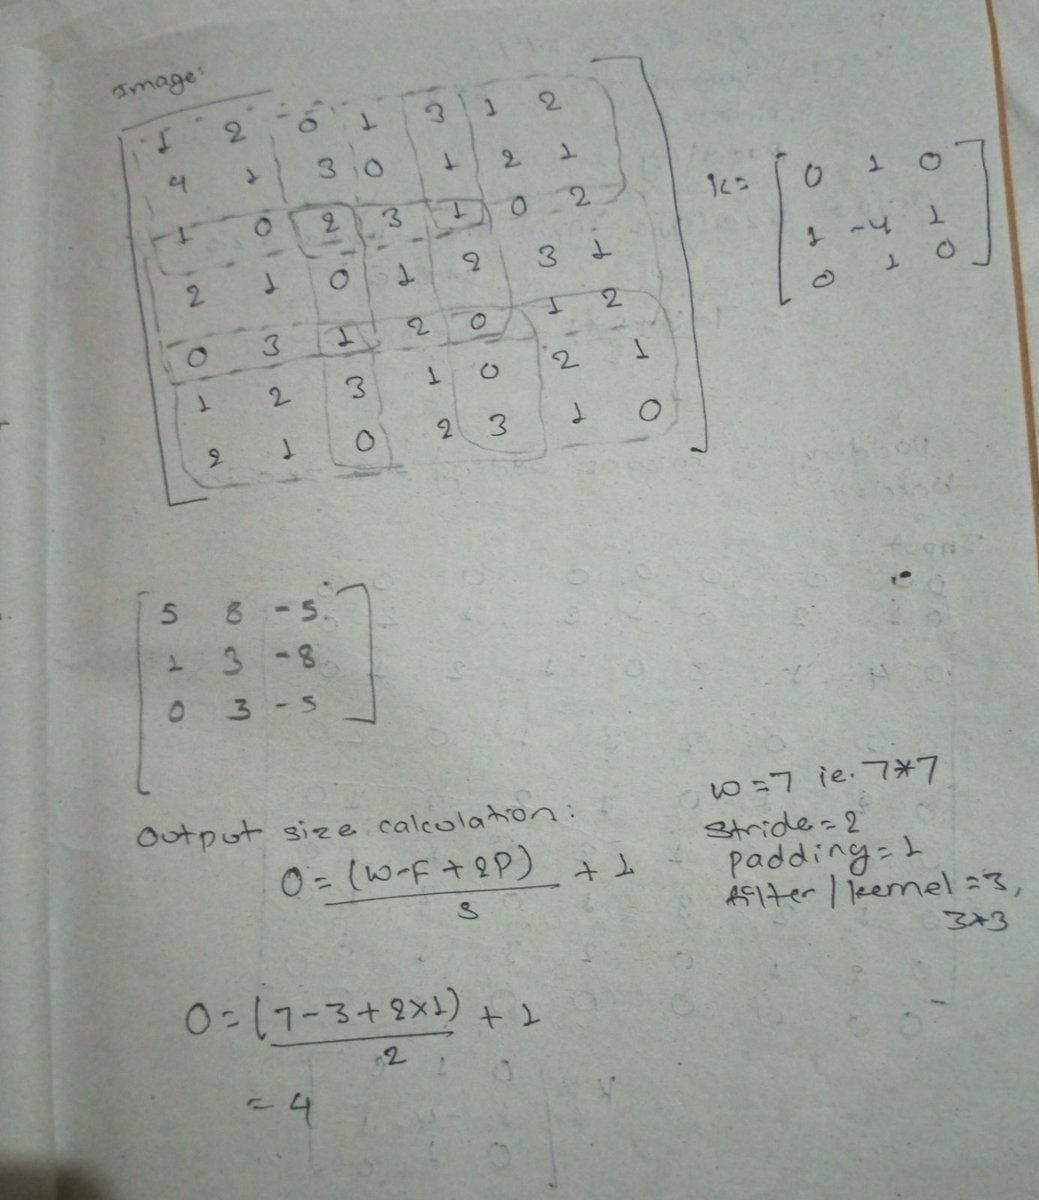 Image:
1 2 0 1 3 1 2
4 1 3 0 1 2 1
1 0 2 3 1 0 2
2 1 0 1 2 3 1
0 3 1 2 0 1 2
1 2 3 1 0 2 1
2 1 0 2 3 1 0
K =
0 1 0
1 -4 1
0 1 0
5 8 -5
1 3 -8
0 3 -5
Output size calculation:
O = (W-F+2P) + 1
S
O = (7-3+2×1) + 1
2
= 4
W = 7 ie. 7*7
Stride = 2
padding = 1
filter / kernel = 3,
3*3